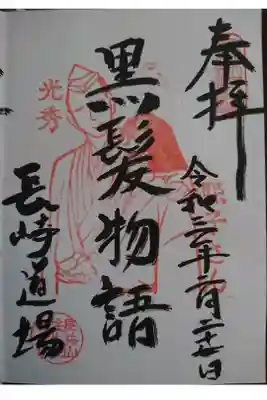 奉拝
令和二年二月二十七日
黒髪物語
光秀
長崎道場